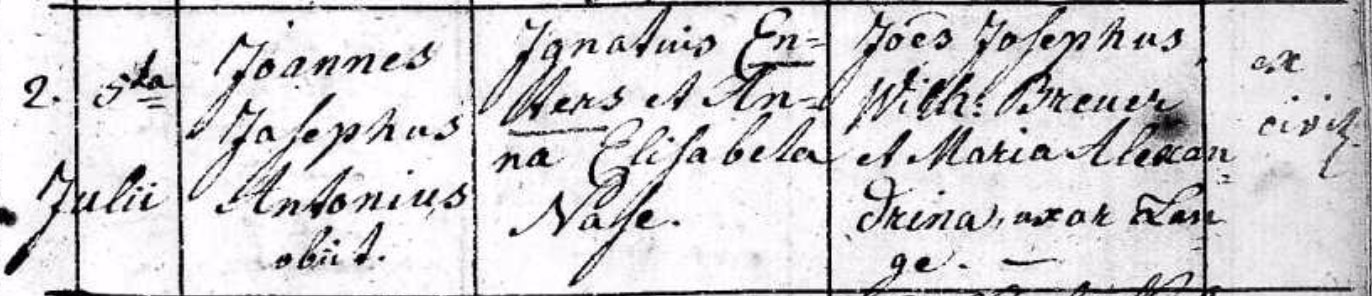 2. 5ta
Julii
Joannes
Josephus
Antonius
obiit.
Ignatius En=
ters et An=
na Elisabeta
Nase.
Joes Josephus
Wilh: Breuer
et Maria Alexan=
drina, uxor Lan=
ge. —
ex
civit.